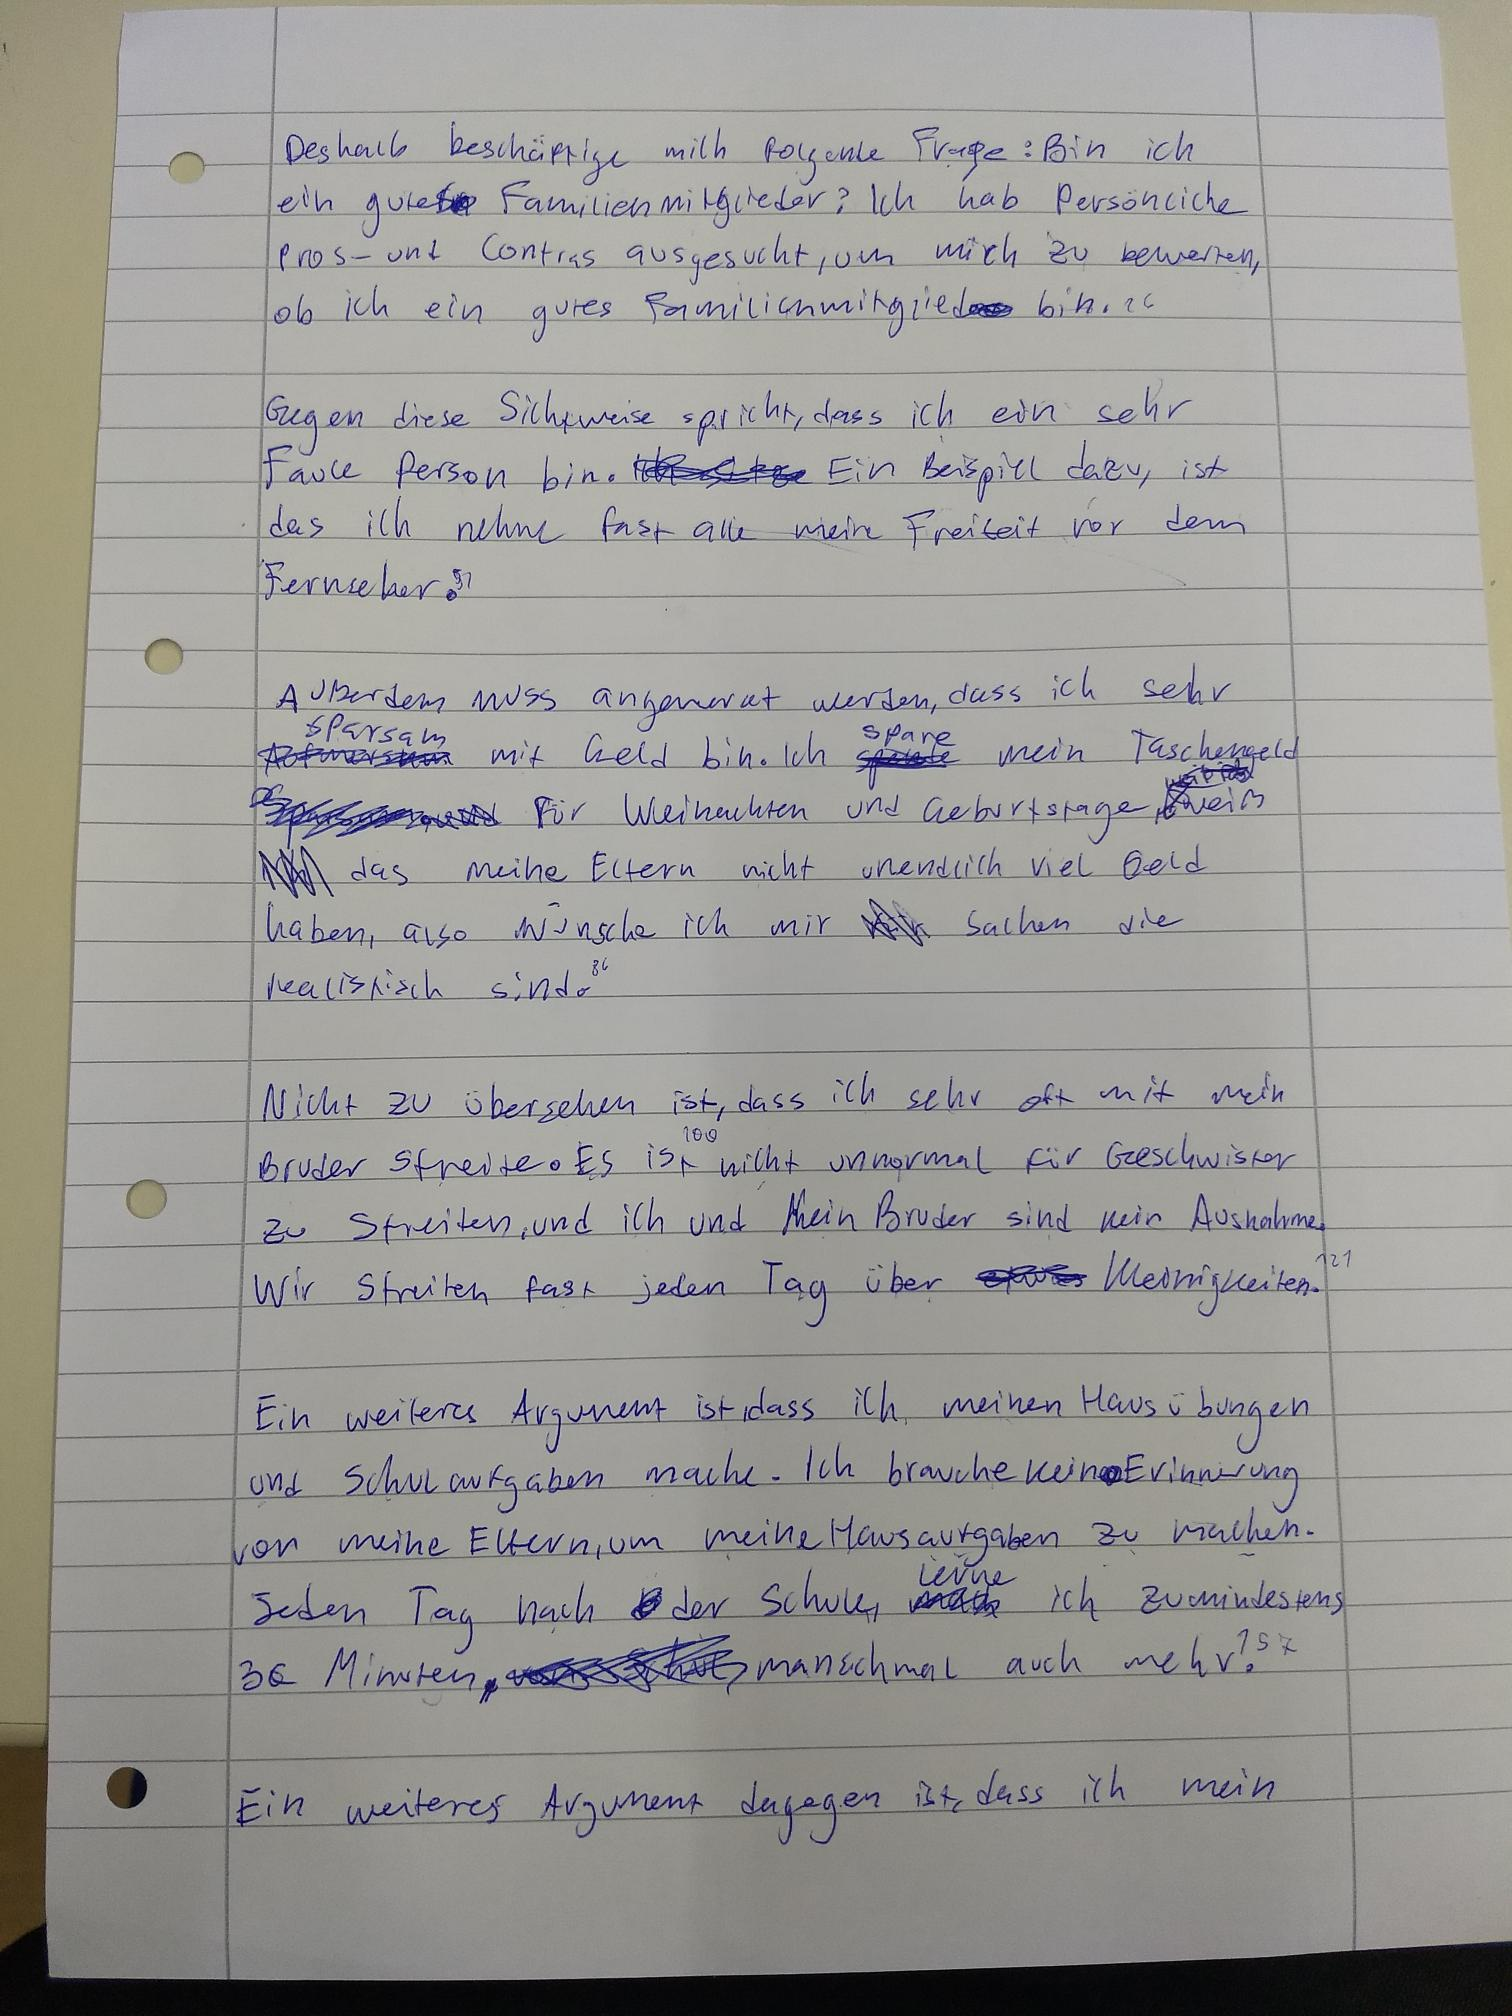 Deshalb beschäftige mich folgende Frage: Bin ich
ein gutes Familienmitglieder? Ich hab Persönliche
Pros- und Contras ausgesucht, um mich zu bewerten,
ob ich ein gutes Familienmitglied bin.
Gegen diese Sichtweise spricht, dass ich ein sehr
Faule Person bin. Ein Beispiel dazu, ist
das ich nehme fast alle meine Freizeit vor dem
Fernseher.
Außerdem muss angemerkt werden, dass ich sehr
sparsam mit Geld bin. Ich spare mein Taschengeld
für Weihnachten und Geburtstage, weiß
das meine Eltern nicht unendlich viel Geld
haben, also wünsche ich mir Sachen die
realistisch sind. 86
Nicht zu übersehen ist, dass ich sehr oft mit mein
Bruder streite. Es ist 100 nicht unnormal für Geschwister
zu Streiten, und ich und Mein Bruder sind kein Ausnahme.
Wir Streiten fast jeden Tag über Kleinigkeiten. 121
Ein weiteres Argument ist, dass ich meinen Hausübungen
und Schulaufgaben mache. Ich brauche kein Erinnerung
von meine Eltern, um meine Hausaufgaben zu machen.
Jeden Tag nach der Schule, lerne ich zumindestens
30 Minuten, manschmal auch mehr. 157
Ein weiteres Argument dagegen ist, dass ich mein